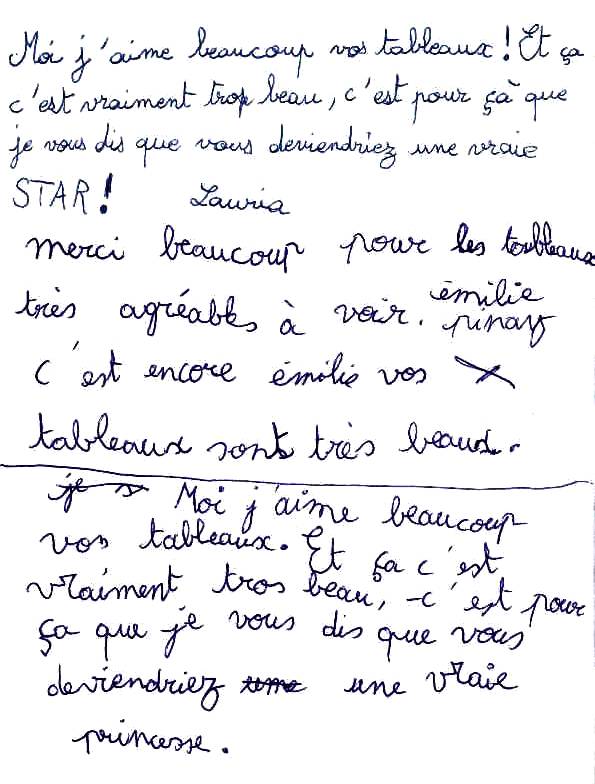 Moi j'aime beaucoup vos tableaux ! Et ça
c'est vraiment trop beau, c'est pour ça que
je vous dis que vous deviendriez une vraie
STAR ! Lauria
merci beaucoup pour les tableaux
très agréables à voir. émilie
pinay
c'est encore émilie vos
tableaux sont très beaux.
je Moi j'aime beaucoup
vos tableaux. Et ça c'est
vraiment tros beau, c'est pour
ça que je vous dis que vous
deviendriez une vraie
princesse.